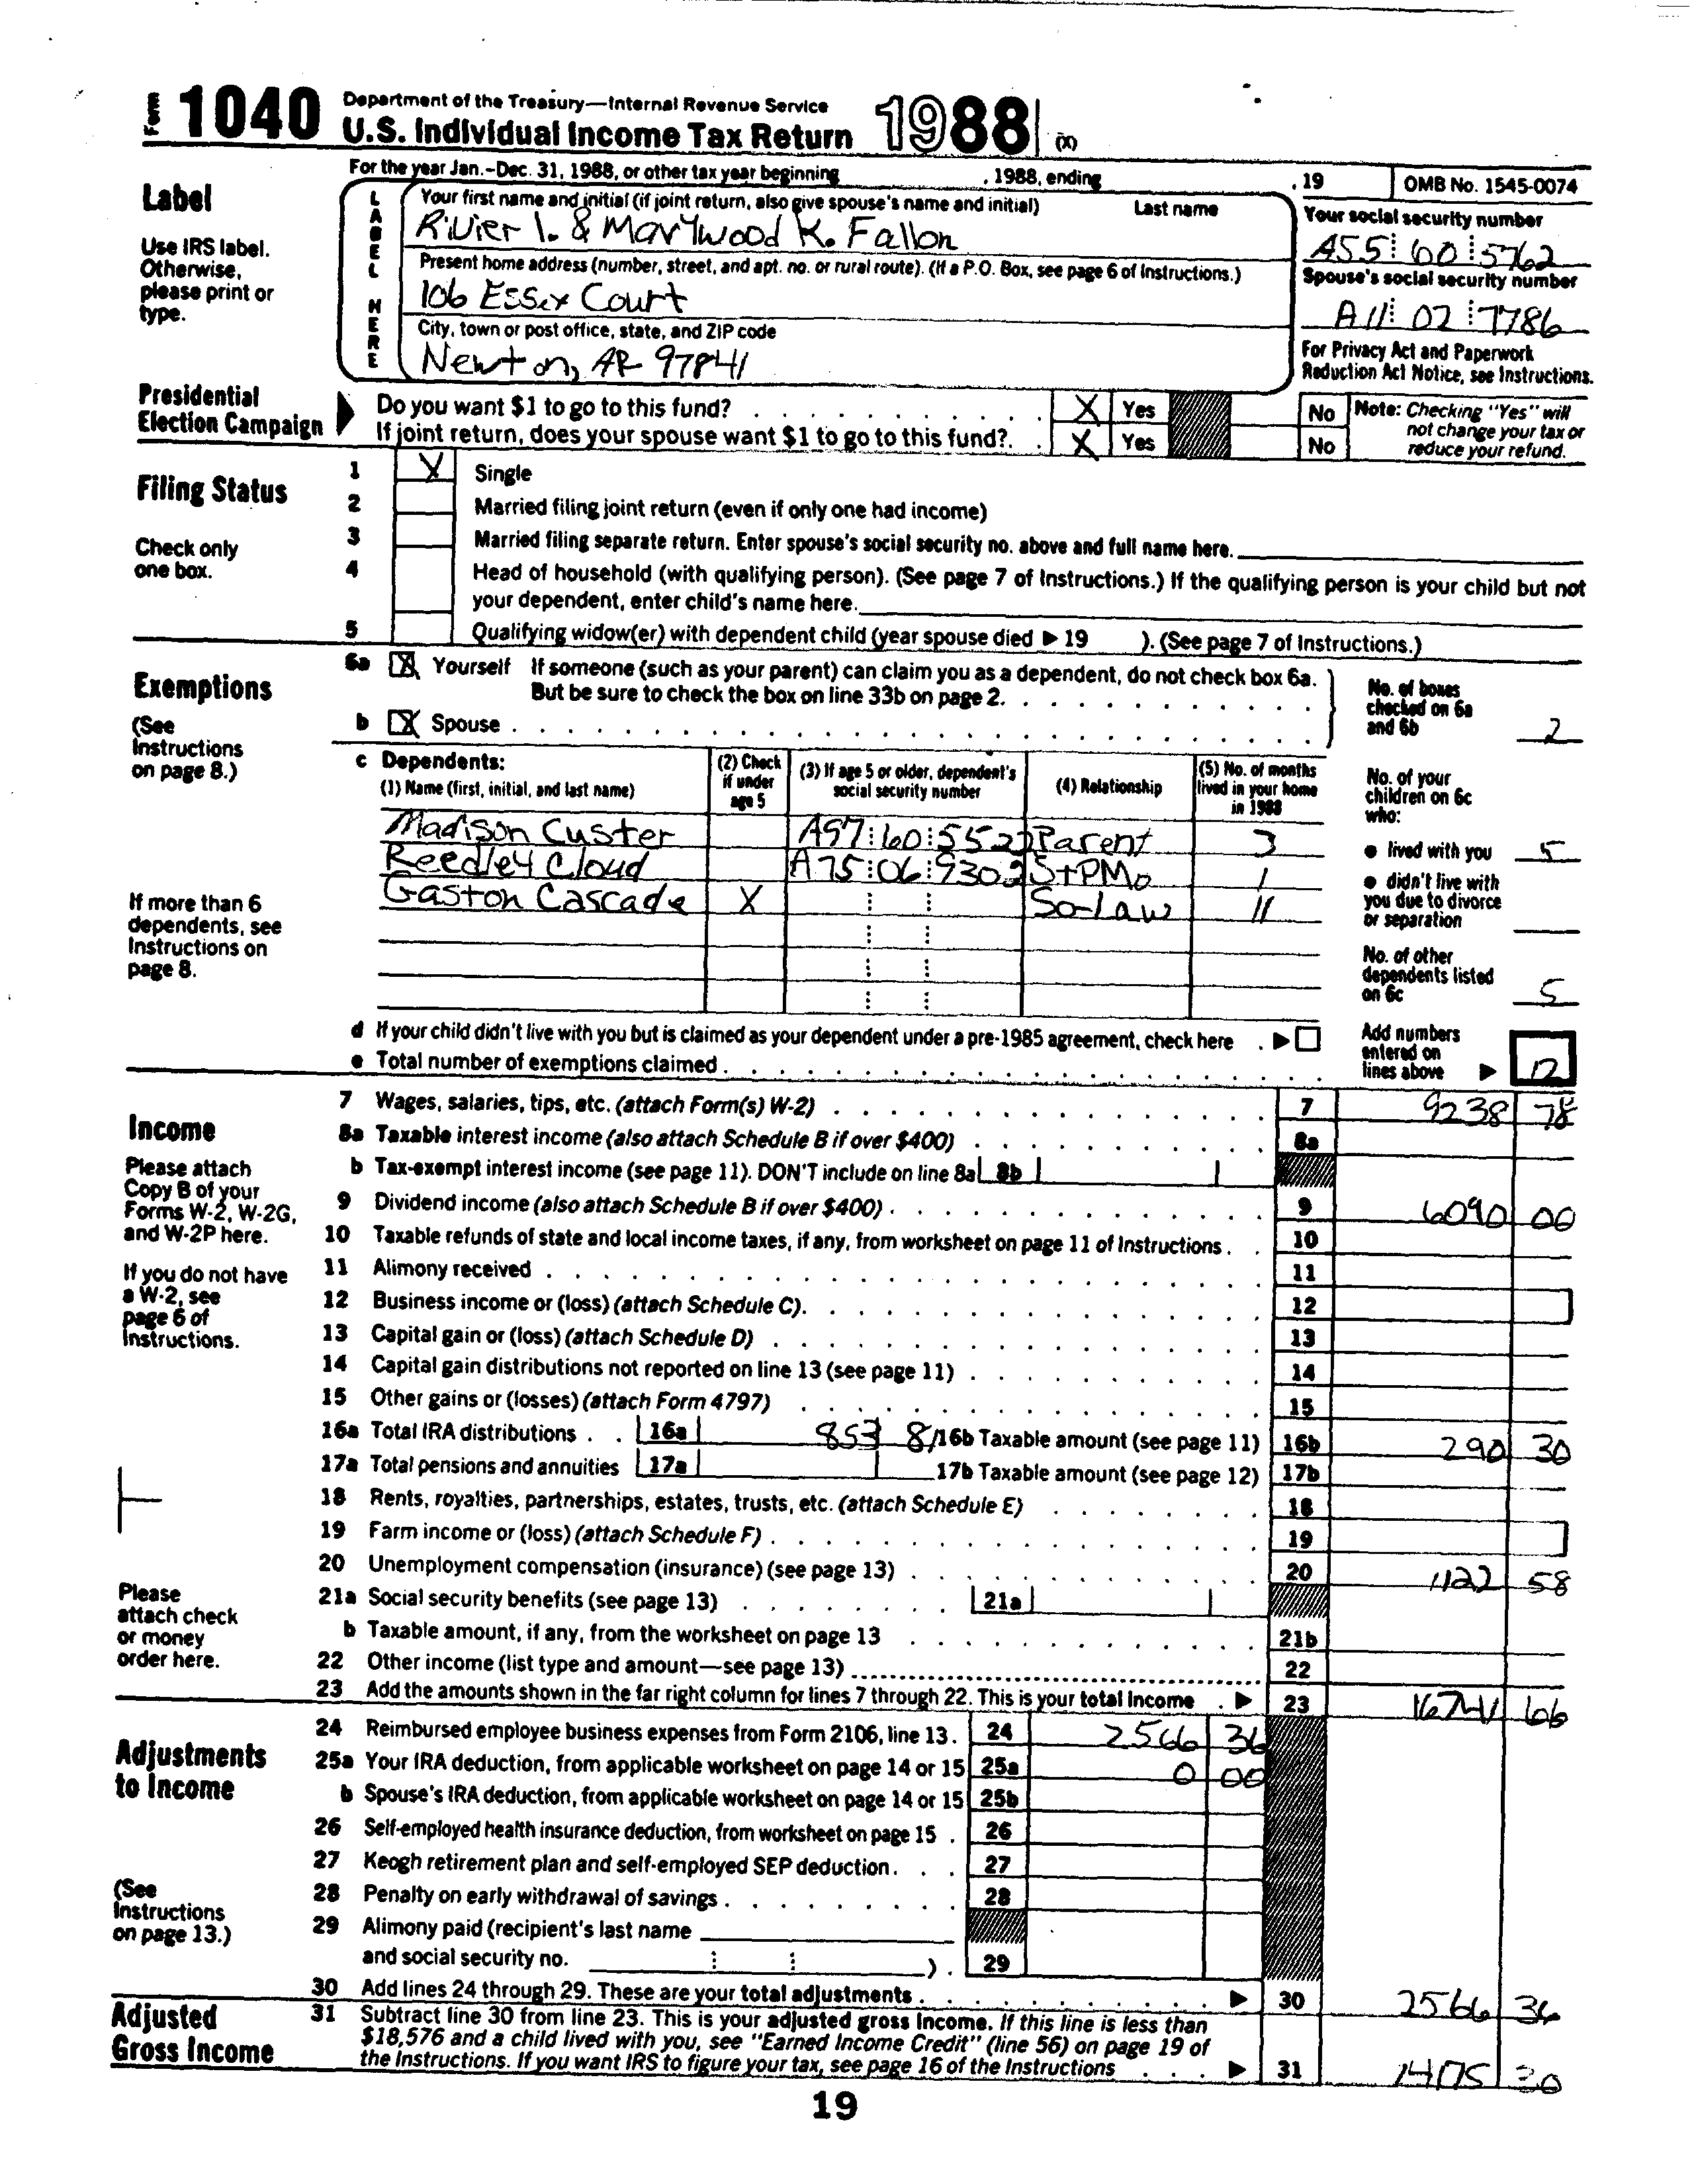 Form 1040 Department of the Treasury—Internal Revenue Service
U.S. Individual Income Tax Return 1988 (X)
For the year Jan.-Dec. 31, 1988, or other tax year beginning , 1988, ending , 19 OMB No. 1545-0074
Label
Use IRS label.
Otherwise,
please print or
type.
LABEL HERE
Your first name and initial (if joint return, also give spouse's name and initial) Last name
Rivier I. & Marywood K. Fallon
Present home address (number, street, and apt. no. or rural route). (If a P.O. Box, see page 6 of Instructions.)
106 Essex Court
City, town or post office, state, and ZIP code
Newton, AR 97841
Your social security number
A55 60 5762
Spouse's social security number
A11 02 7786
For Privacy Act and Paperwork
Reduction Act Notice, see Instructions.
Presidential
Election Campaign
Do you want $1 to go to this fund? X Yes No
If joint return, does your spouse want $1 to go to this fund? X Yes No
Note: Checking "Yes" will
not change your tax or
reduce your refund.
Filing Status
Check only
one box.
1 X Single
2 Married filing joint return (even if only one had income)
3 Married filing separate return. Enter spouse's social security no. above and full name here.
4 Head of household (with qualifying person). (See page 7 of Instructions.) If the qualifying person is your child but not
your dependent, enter child's name here.
5 Qualifying widow(er) with dependent child (year spouse died ▶ 19 ). (See page 7 of Instructions.)
Exemptions
(See
Instructions
on page 8.)
If more than 6
dependents, see
Instructions on
page 8.
6a X Yourself If someone (such as your parent) can claim you as a dependent, do not check box 6a.
But be sure to check the box on line 33b on page 2.
b X Spouse
No. of boxes
checked on 6a
and 6b 2
c Dependents:
(1) Name (first, initial, and last name) (2) Check if under age 5 (3) If age 5 or older, dependent's social security number (4) Relationship (5) No. of months lived in your home in 1988
Madison Custer A97 60 5522 Parent 3
Reedley Cloud A75 06 9302 StPMo 1
Gaston Cascade X So-law 11
No. of your
children on 6c
who:
● lived with you 5
● didn't live with
you due to divorce
or separation
No. of other
dependents listed
on 6c 5
d If your child didn't live with you but is claimed as your dependent under a pre-1985 agreement, check here ▶
e Total number of exemptions claimed
Add numbers
entered on
lines above ▶ 12
Income
Please attach
Copy B of your
Forms W-2, W-2G,
and W-2P here.
If you do not have
a W-2, see
page 6 of
Instructions.
Please
attach check
or money
order here.
7 Wages, salaries, tips, etc. (attach Form(s) W-2) 7 9238 78
8a Taxable interest income (also attach Schedule B if over $400) 8a
b Tax-exempt interest income (see page 11). DON'T include on line 8a 8b
9 Dividend income (also attach Schedule B if over $400) 9 6090 00
10 Taxable refunds of state and local income taxes, if any, from worksheet on page 11 of Instructions 10
11 Alimony received 11
12 Business income or (loss) (attach Schedule C) 12
13 Capital gain or (loss) (attach Schedule D) 13
14 Capital gain distributions not reported on line 13 (see page 11) 14
15 Other gains or (losses) (attach Form 4797) 15
16a Total IRA distributions 16a 853 81 16b Taxable amount (see page 11) 16b 290 30
17a Total pensions and annuities 17a 17b Taxable amount (see page 12) 17b
18 Rents, royalties, partnerships, estates, trusts, etc. (attach Schedule E) 18
19 Farm income or (loss) (attach Schedule F) 19
20 Unemployment compensation (insurance) (see page 13) 20 1122 58
21a Social security benefits (see page 13) 21a
b Taxable amount, if any, from the worksheet on page 13 21b
22 Other income (list type and amount—see page 13) 22
23 Add the amounts shown in the far right column for lines 7 through 22. This is your total income ▶ 23 16741 66
Adjustments
to Income
(See
Instructions
on page 13.)
24 Reimbursed employee business expenses from Form 2106, line 13. 24 2566 36
25a Your IRA deduction, from applicable worksheet on page 14 or 15 25a 0 00
b Spouse's IRA deduction, from applicable worksheet on page 14 or 15 25b
26 Self-employed health insurance deduction, from worksheet on page 15 26
27 Keogh retirement plan and self-employed SEP deduction 27
28 Penalty on early withdrawal of savings 28
29 Alimony paid (recipient's last name
and social security no. ) 29
30 Add lines 24 through 29. These are your total adjustments ▶ 30 2566 36
Adjusted
Gross Income
31 Subtract line 30 from line 23. This is your adjusted gross income. If this line is less than
$18,576 and a child lived with you, see "Earned Income Credit" (line 56) on page 19 of
the Instructions. If you want IRS to figure your tax, see page 16 of the Instructions ▶ 31 14175 30
19